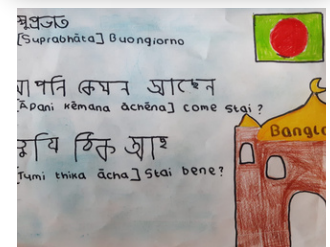 সুপ্রভাত
[Suprabhāta] Buongiorno
আপনি কেমন আছেন
[Āpani kēmana āchēna] come stai ?
তুমি ঠিক আছ
[Tumi thika ācha] Stai bene?